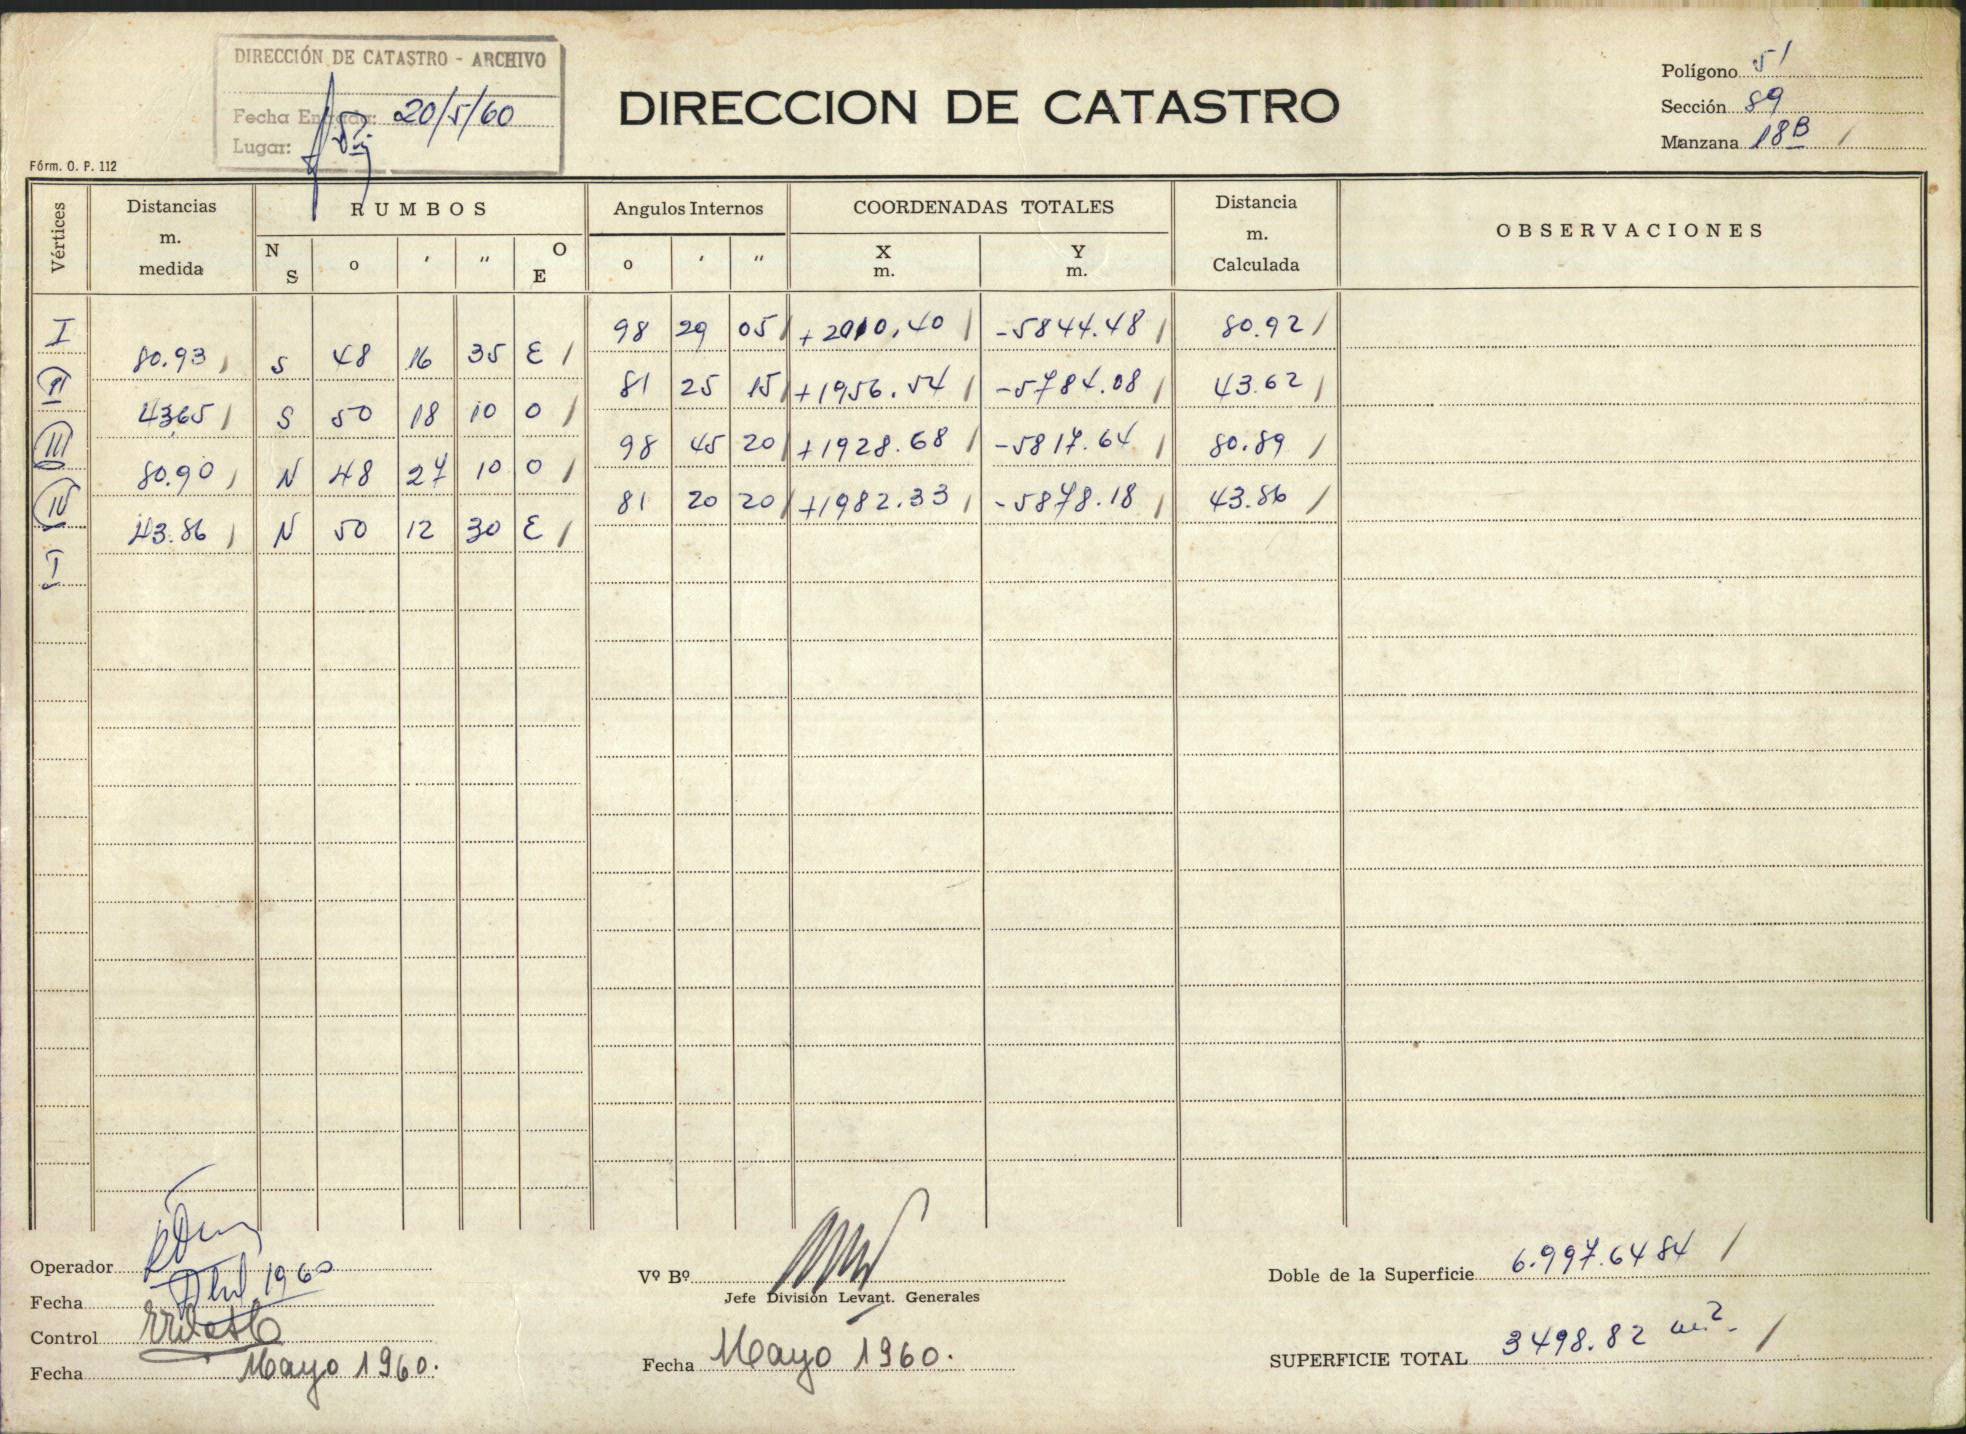 DIRECCIÓN DE CATASTRO - ARCHIVO
Fecha Entrada: 20/5/60
Lugar:
DIRECCION DE CATASTRO
Polígono 51
Sección 89
Manzana 18B
Fórm. O. P. 112
Vértices Distancias m. medida RUMBOS Angulos Internos COORDENADAS TOTALES Distancia m. Calculada OBSERVACIONES
N S o ' " O E o ' " X m. Y m.
I 98 29 05 +2010.40 -5844.48 80.92
80.93 S 48 16 35 E
II 81 25 15 +1956.54 -5784.08 43.62
43.65 S 50 18 10 O
III 98 45 20 +1928.68 -5817.64 80.89
80.90 N 48 27 10 O
IV 81 20 20 +1982.33 -5878.18 43.86
43.86 N 50 12 30 E
I
Operador
Fecha Abril 1960
Control
Fecha Mayo 1960.
Vº Bº
Jefe División Levant. Generales
Fecha Mayo 1960.
Doble de la Superficie 6.997.6484
SUPERFICIE TOTAL 3498.82 m².